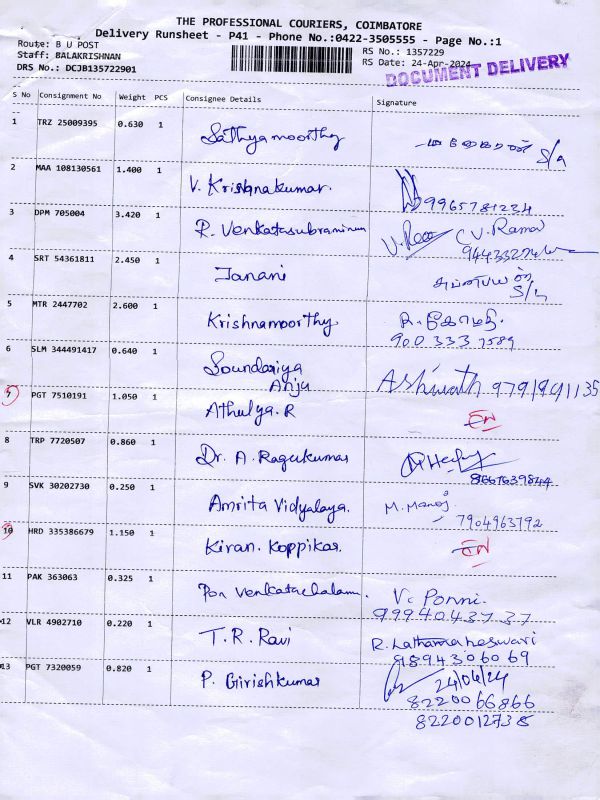 THE PROFESSIONAL COURIERS, COIMBATORE
Delivery Runsheet - P41 - Phone No.:0422-3505555 - Page No.:1
Route: B U POST
Staff: BALAKRISHNAN
DRS No.: DCJB135722901
RS No.: 1357229
RS Date: 24-Apr-2024
DOCUMENT DELIVERY
S No Consignment No Weight PCS Consignee Details Signature
1 TRZ 25009395 0.630 1 Sathyamoorthy S/a
2 MAA 108130561 1.400 1 V. Krishnakumar. 9965781234
3 DPM 705004 3.420 1 R. Venkatasubramiam V. Raa C V. Raman
4 SRT 54361811 2.450 1 Janani
5 MTR 2447702 2.600 1 Krishnamoorthy
900 333 7589
6 SLM 344491417 0.640 1 Soundariya Ashwath
Anju
7 PGT 7510191 1.050 1 Athulya. R EN
8 TRP 7720507 0.860 1 Dr. A. Ragukumar
9 SVK 30202730 0.250 1 Amrita Vidyalaya. M. Manoj
7904963792
10 HRD 335386679 1.150 1 Kiran. Koppikar. EN
11 PAK 363063 0.325 1 Pon Venkatachalam. V. Ponni.
9994043737
12 VLR 4902710 0.220 1 T. R. Ravi R. Lathamaheswari
9894306069
13 PGT 7320059 0.820 1 P. Girishkumar 24/04/24
8220066866
8220012738